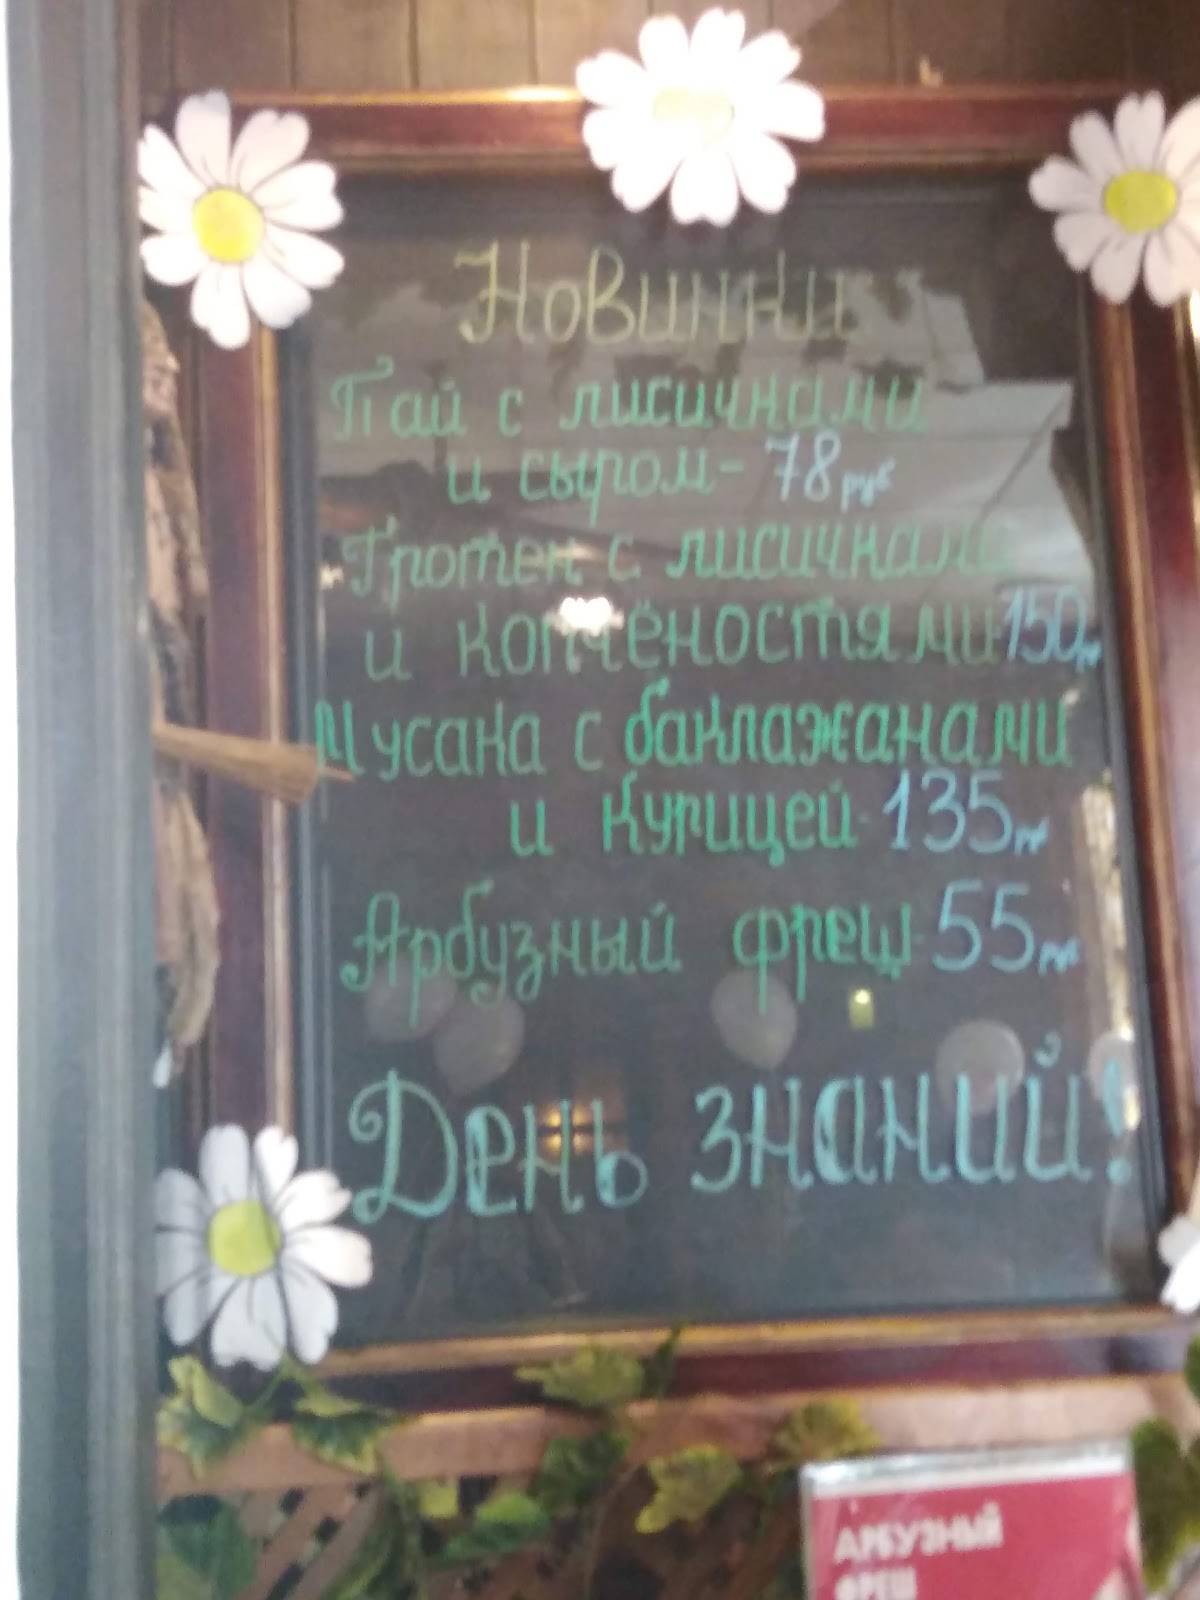 Новинки
Пай с лисичками
и сыром - 78 руб
Гротен с лисичками
и копчёностями 150 р
Мусака с баклажанами
и курицей - 135 руб
Арбузный фреш - 55 руб
День знаний!
АРБУЗНЫЙ
ФРЕШ